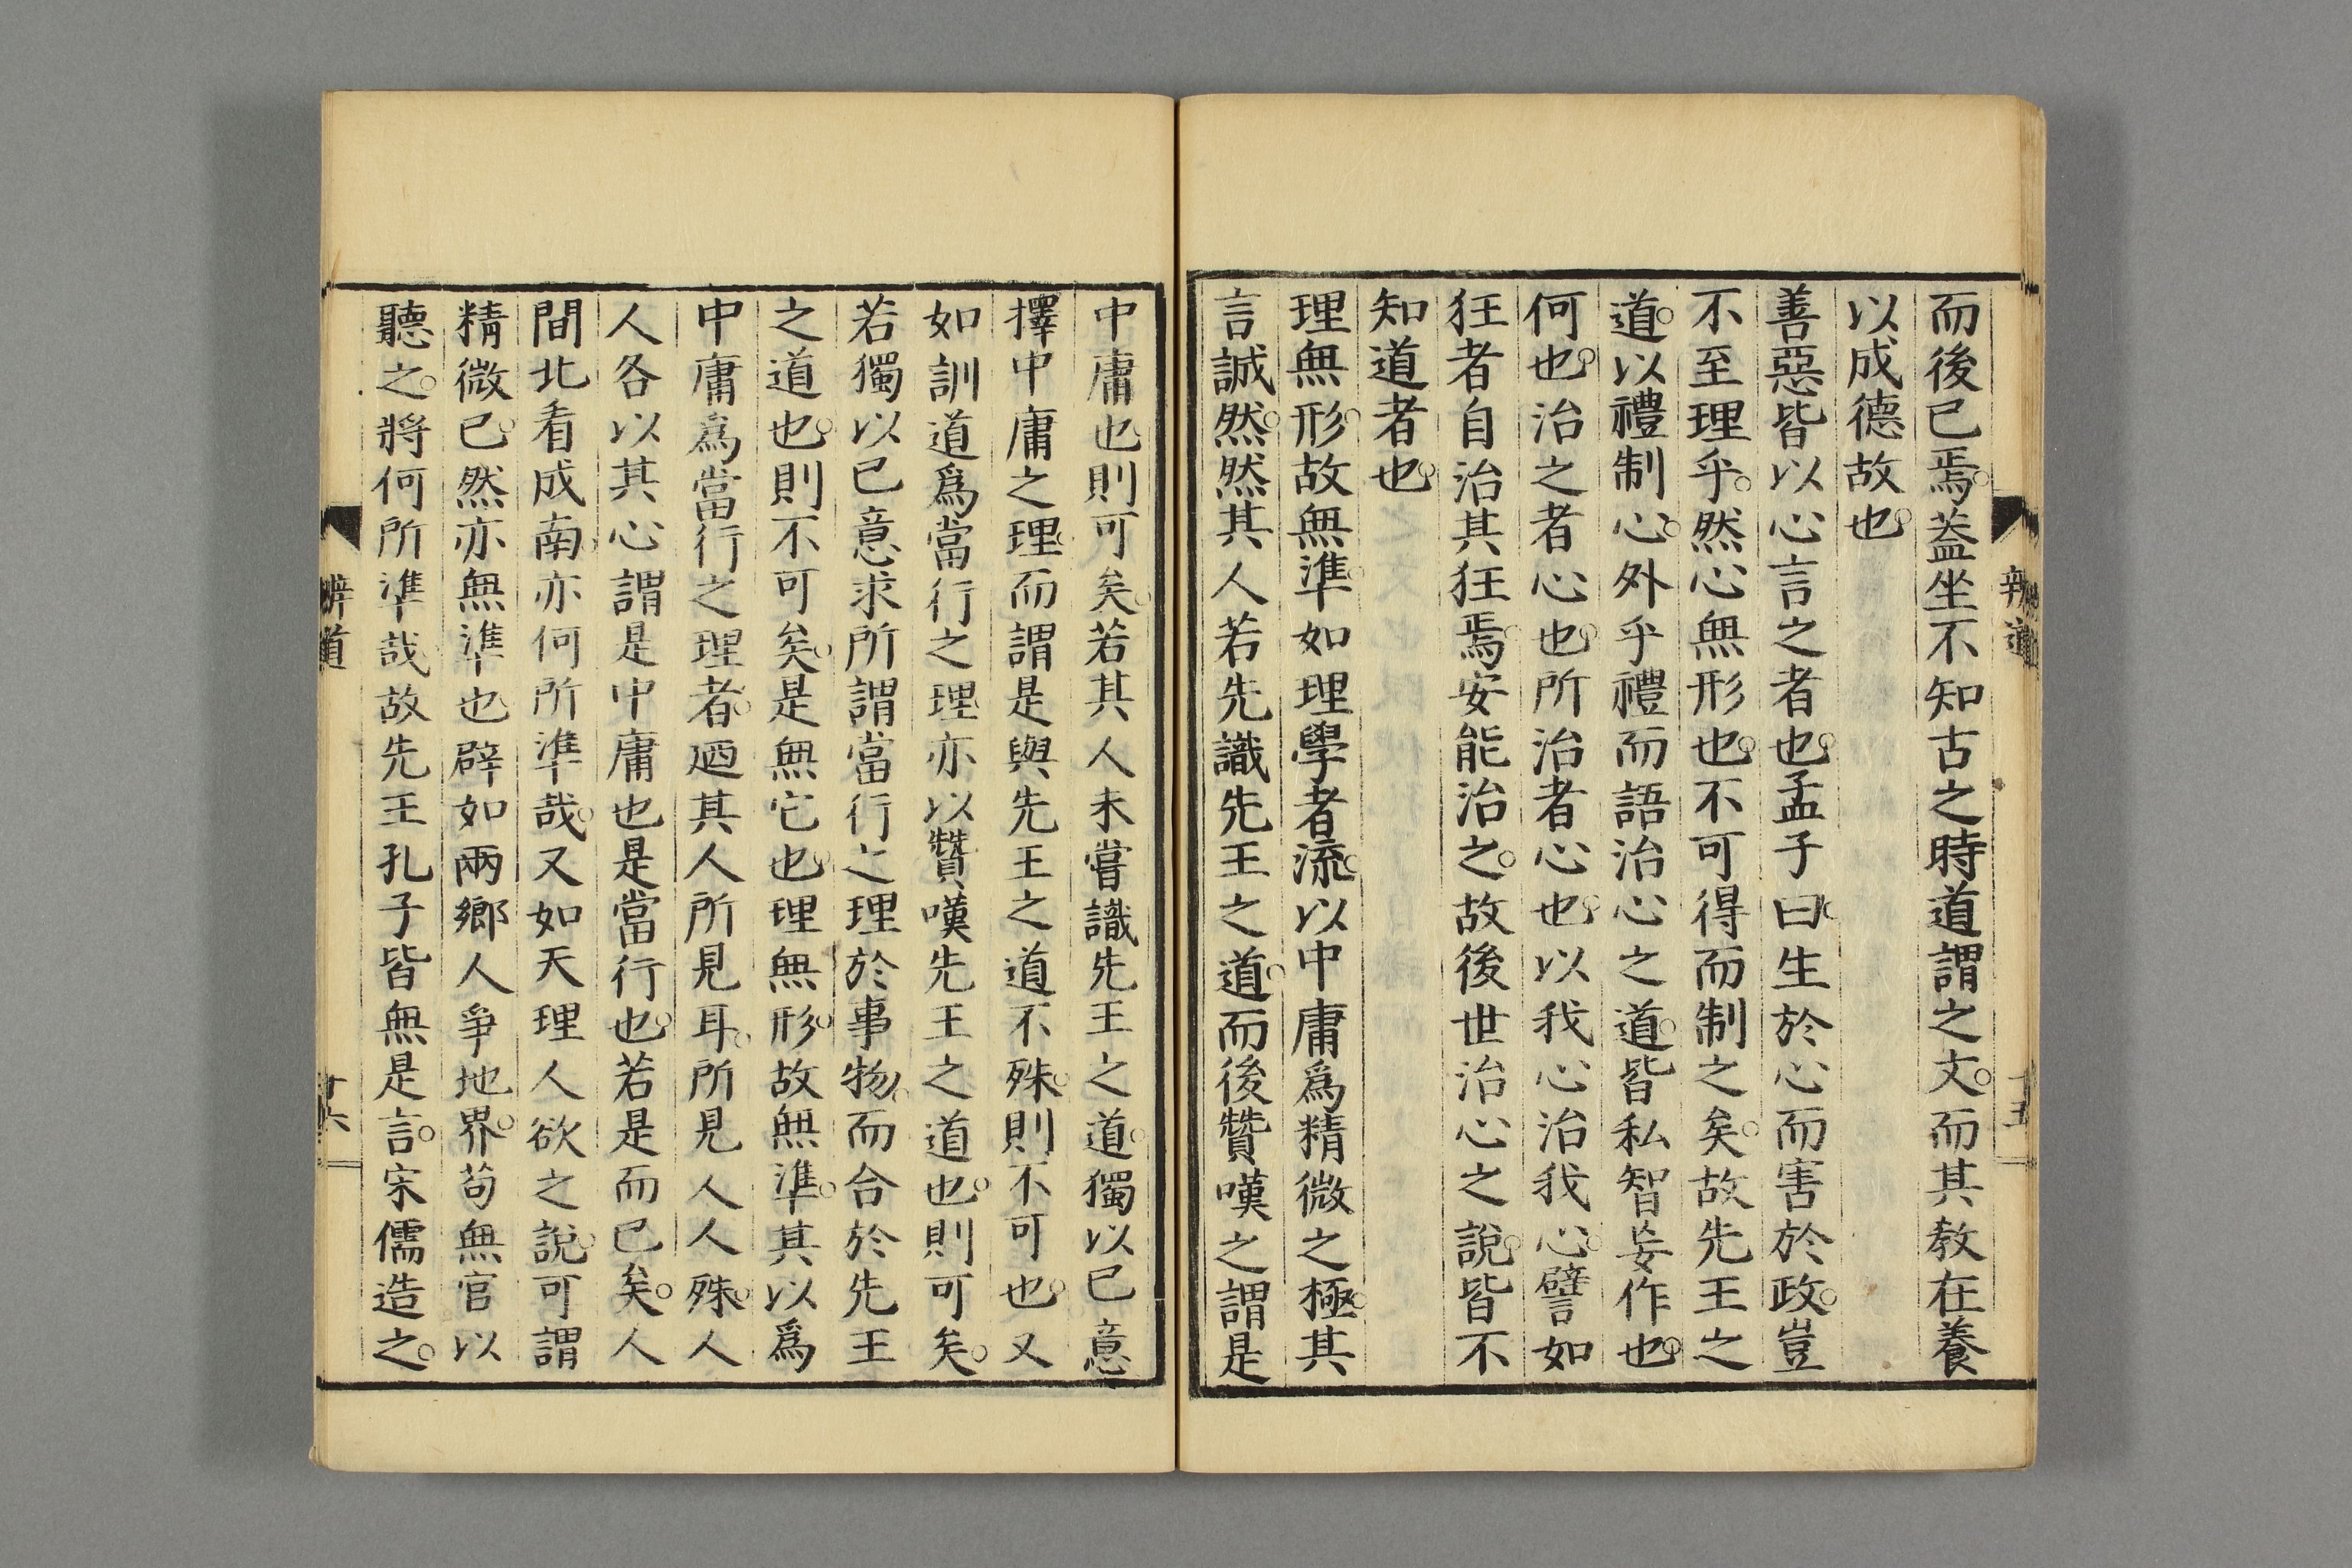 而後已焉。葢坐不知古之時道謂之文。而其教在養
以成德故也。
善惡皆以心言之者也。孟子曰。生於心而害於政。豈
不至理乎。然心無形也。不可得而制之矣。故先王之
道。以禮制心。外乎禮而語治心之道。皆私智妄作也。
何也。治之者心也。所治者心也。以我心治我心。譬如
狂者自治其狂焉。安能治之。故後世治心之說。皆不
知道者也。
理無形。故無準。如理學者流。以中庸爲精微之極。其
言誠然。然其人若先識先王之道。而後贊嘆之謂是
辨道
十五
中庸也則可矣。若其人未嘗識先王之道。獨以已意
擇中庸之理。而謂是與先王之道不殊。則不可也。又
如訓道爲當行之理。亦以贊嘆先王之道也。則可矣。
若獨以已意求所謂當行之理於事物。而合於先王
之道也。則不可矣。是無它也。理無形。故無準。其以爲
中庸爲當行之理者。廼其人所見耳。所見人人殊。人
人各以其心謂是中庸也是當行也。若是而已矣。人
間北看成南。亦何所準哉。又如天理人欲之說。可謂
精微已。然亦無準也。辟如兩鄉人爭地界。苟無官以
聽之。將何所準哉。故先王孔子皆無是言。宋儒造之。
辨道
十六